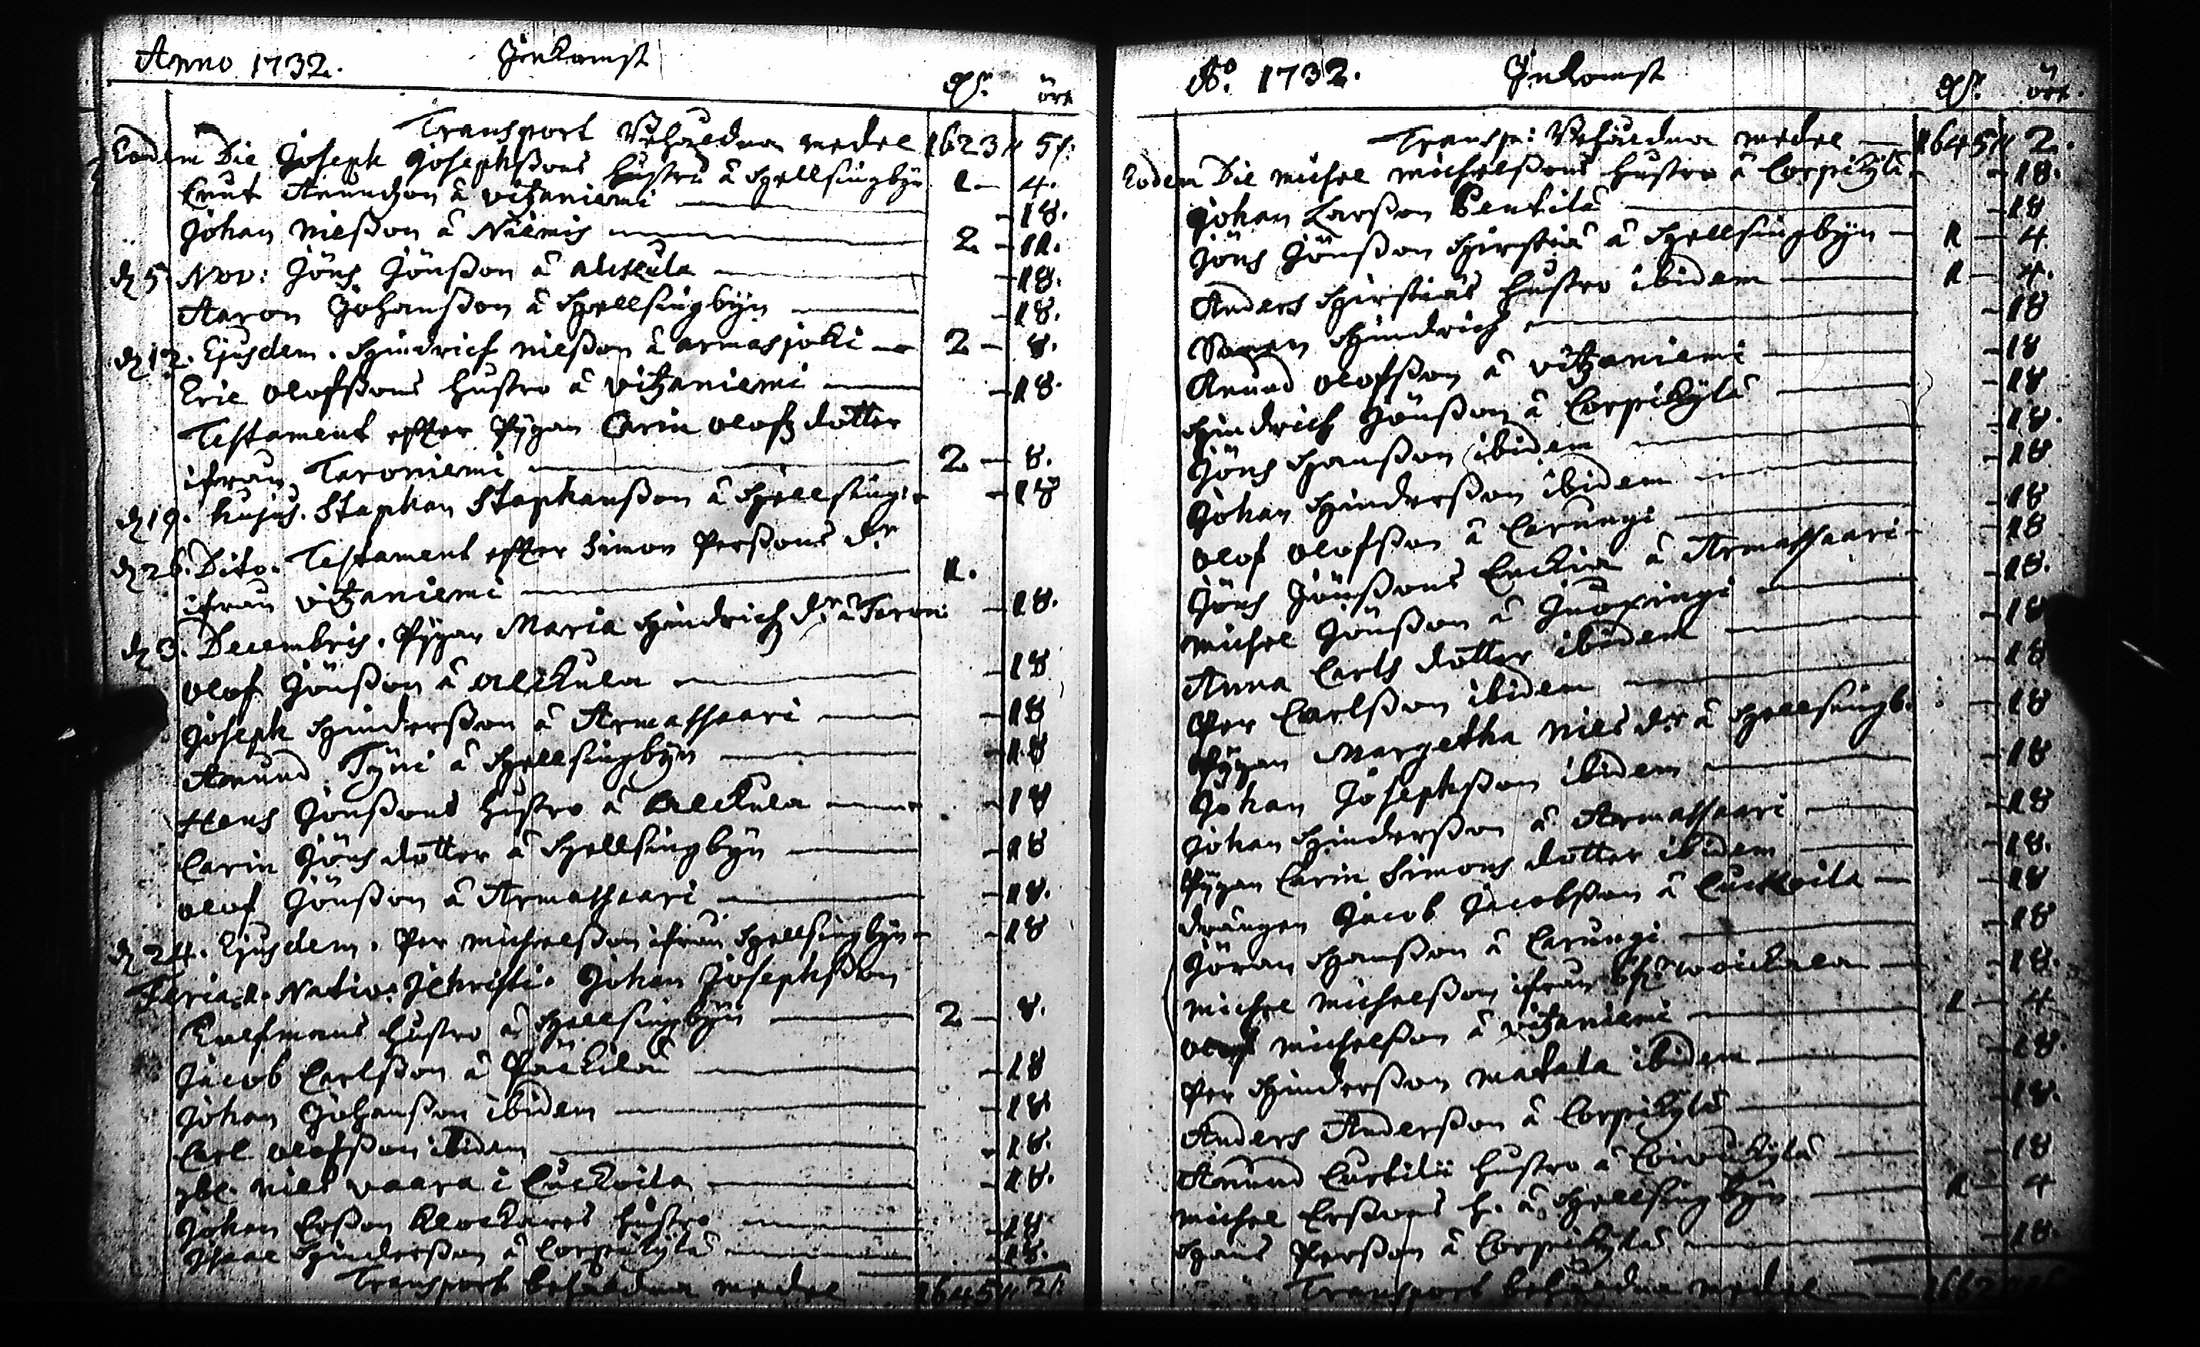 Anno 1732. Inkomst
dlr. öre
Transport Behåldna medel 1623 " 5 "
Eodem Die Joseph Josephßons hustru å Hellsingbyn 1 - 4.
Knut Anundßon å Vitzaniemi - 18.
Johan Nilsßon å Niemis 2 - 11.
d. 5 Nov: Jöns Jönßon å Alckula - 18.
Aaron Johanßon å Hellsingbyn - 18.
d. 12. Ejusdem. Hindrich Nilsßon å Armasjoki 2 - 8.
Eric Olofßons hustru å Vitzaniemi - 18.
Testament effter Pigan Carin Olofz dotter
ifrån Taroniemi 2 - 8.
d. 19. hujus. Staphan Staphanßon å Hellsing: - 18
d. 26. Dito. Testament effter Simon Perßons dr
ifrån Vitzaniemi 1.
d. 3. Decembris. Pigan Maria Hindrichz dr å Taron: - 18.
Olof Jönßon å Alckula - 18
Joseph Hinderßon å Armassaari - 18
Amund Tyni å Hellsingbyn - 18
Hans Jönßons hustro å Alckula - 18
Carin Jöns dotter å Hellsingbyn - 18
Olof Jönßon å Armassaari - 18.
d. 24. Ejusdem. Per Michelßon ifrån Hellsingbyn - 18
Feria 1. Nativ: JChristi. Johan Josephßon
Kalfmans hustro å Hellsingbyn 2 - 8.
Jacob Carlßon å Päckilä - 18
Johan Johanßon ibidem - 18
Carl Olofßon ibidem - 18.
Nils Vaara i Cuckoila - 18.
Johan Erßon Klockares hustro - 18
Isaac Hinderßon å Corpikylä - 18.
Transport behåldna medel 1645 " 2 "
Ao. 1732. Inkomst
dlr. öre.
Transp: Behåldna medel 1645 " 2.
Eodem Die Michel Michelßons hustro å Corpikylä - 18.
Johan Larßon Pentilä - 18
Jöns Jönßon Hirstiä å Hellsingbyn 1 - 4
Anders Hirstiäs hustro ibidem 1 - 4.
Hindrich - 18
Anund Olofßon å Vitzaniemi - 18
Hindrich Jönßon å Corpikylä - 18
Jöns Hanßon ibidem - 18.
Johan Hinderßon ibidem - 18
Olof Olofßon å Carungi - 18
Jöns Jönßons Enckia å Armassaari - 18
Michel Jönßon å Juoxengi - 18.
Anna Carls dotter ibidem - 18
Per Carlßon ibidem - 18
Pigan Margetha Nils dr å Hellsingb. - 18
Johan Josephßon ibidem - 18
Johan Hinderßon å Armassaari - 18
Pigan Carin Simons dotter ibidem - 18.
drängen Jacob Jacobßon å Cuckoila - 18
Jöran Hanßon å Carungi - 18
Michel Michelßon ifrån - 18.
Olof Michelßon å Vitzaniemi 1 - 4
Per Hinderßon Matala ibidem - 18.
Anders Anderßon å Corpikylä - 18.
Amund Curtilii hustro å Coivukylä - 18
Michel Erßons h. å Hellsingbyn 1 - 4
Hans Perßon å Corpikylä - 18.
Transport behåldna medel 1662